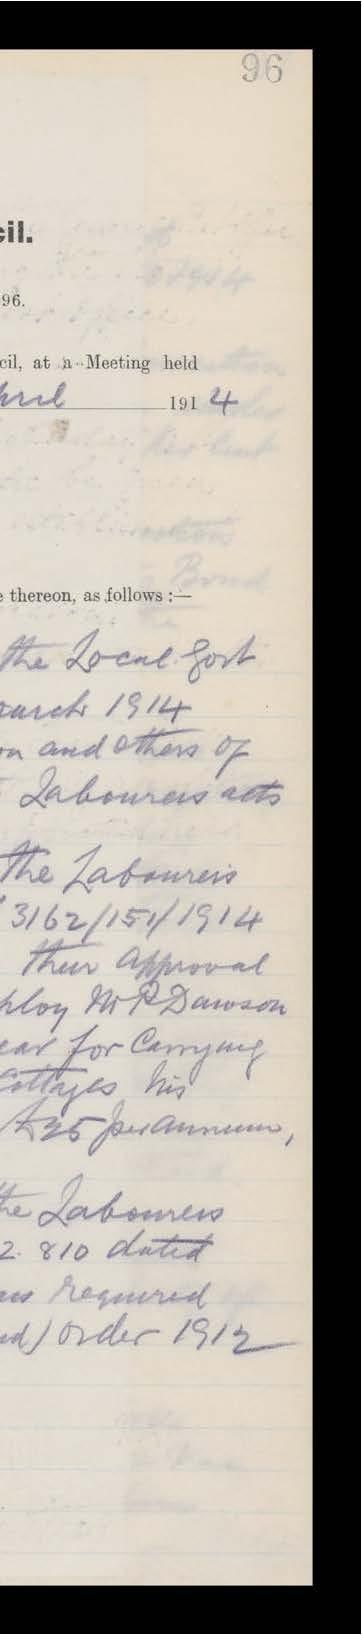 96
cil.
96.
cil, at a Meeting held
pril 1914
e thereon, as follows :—
the Local Govt
march 1914
on and others of
Labourers acts
the Labourers
3162/151/1914
their approval
ploy Mr P Dawson
ear for Carrying
Cottages his
£25 per annum,
the Labourers
2. 810 dated
as required
nd) order 1912